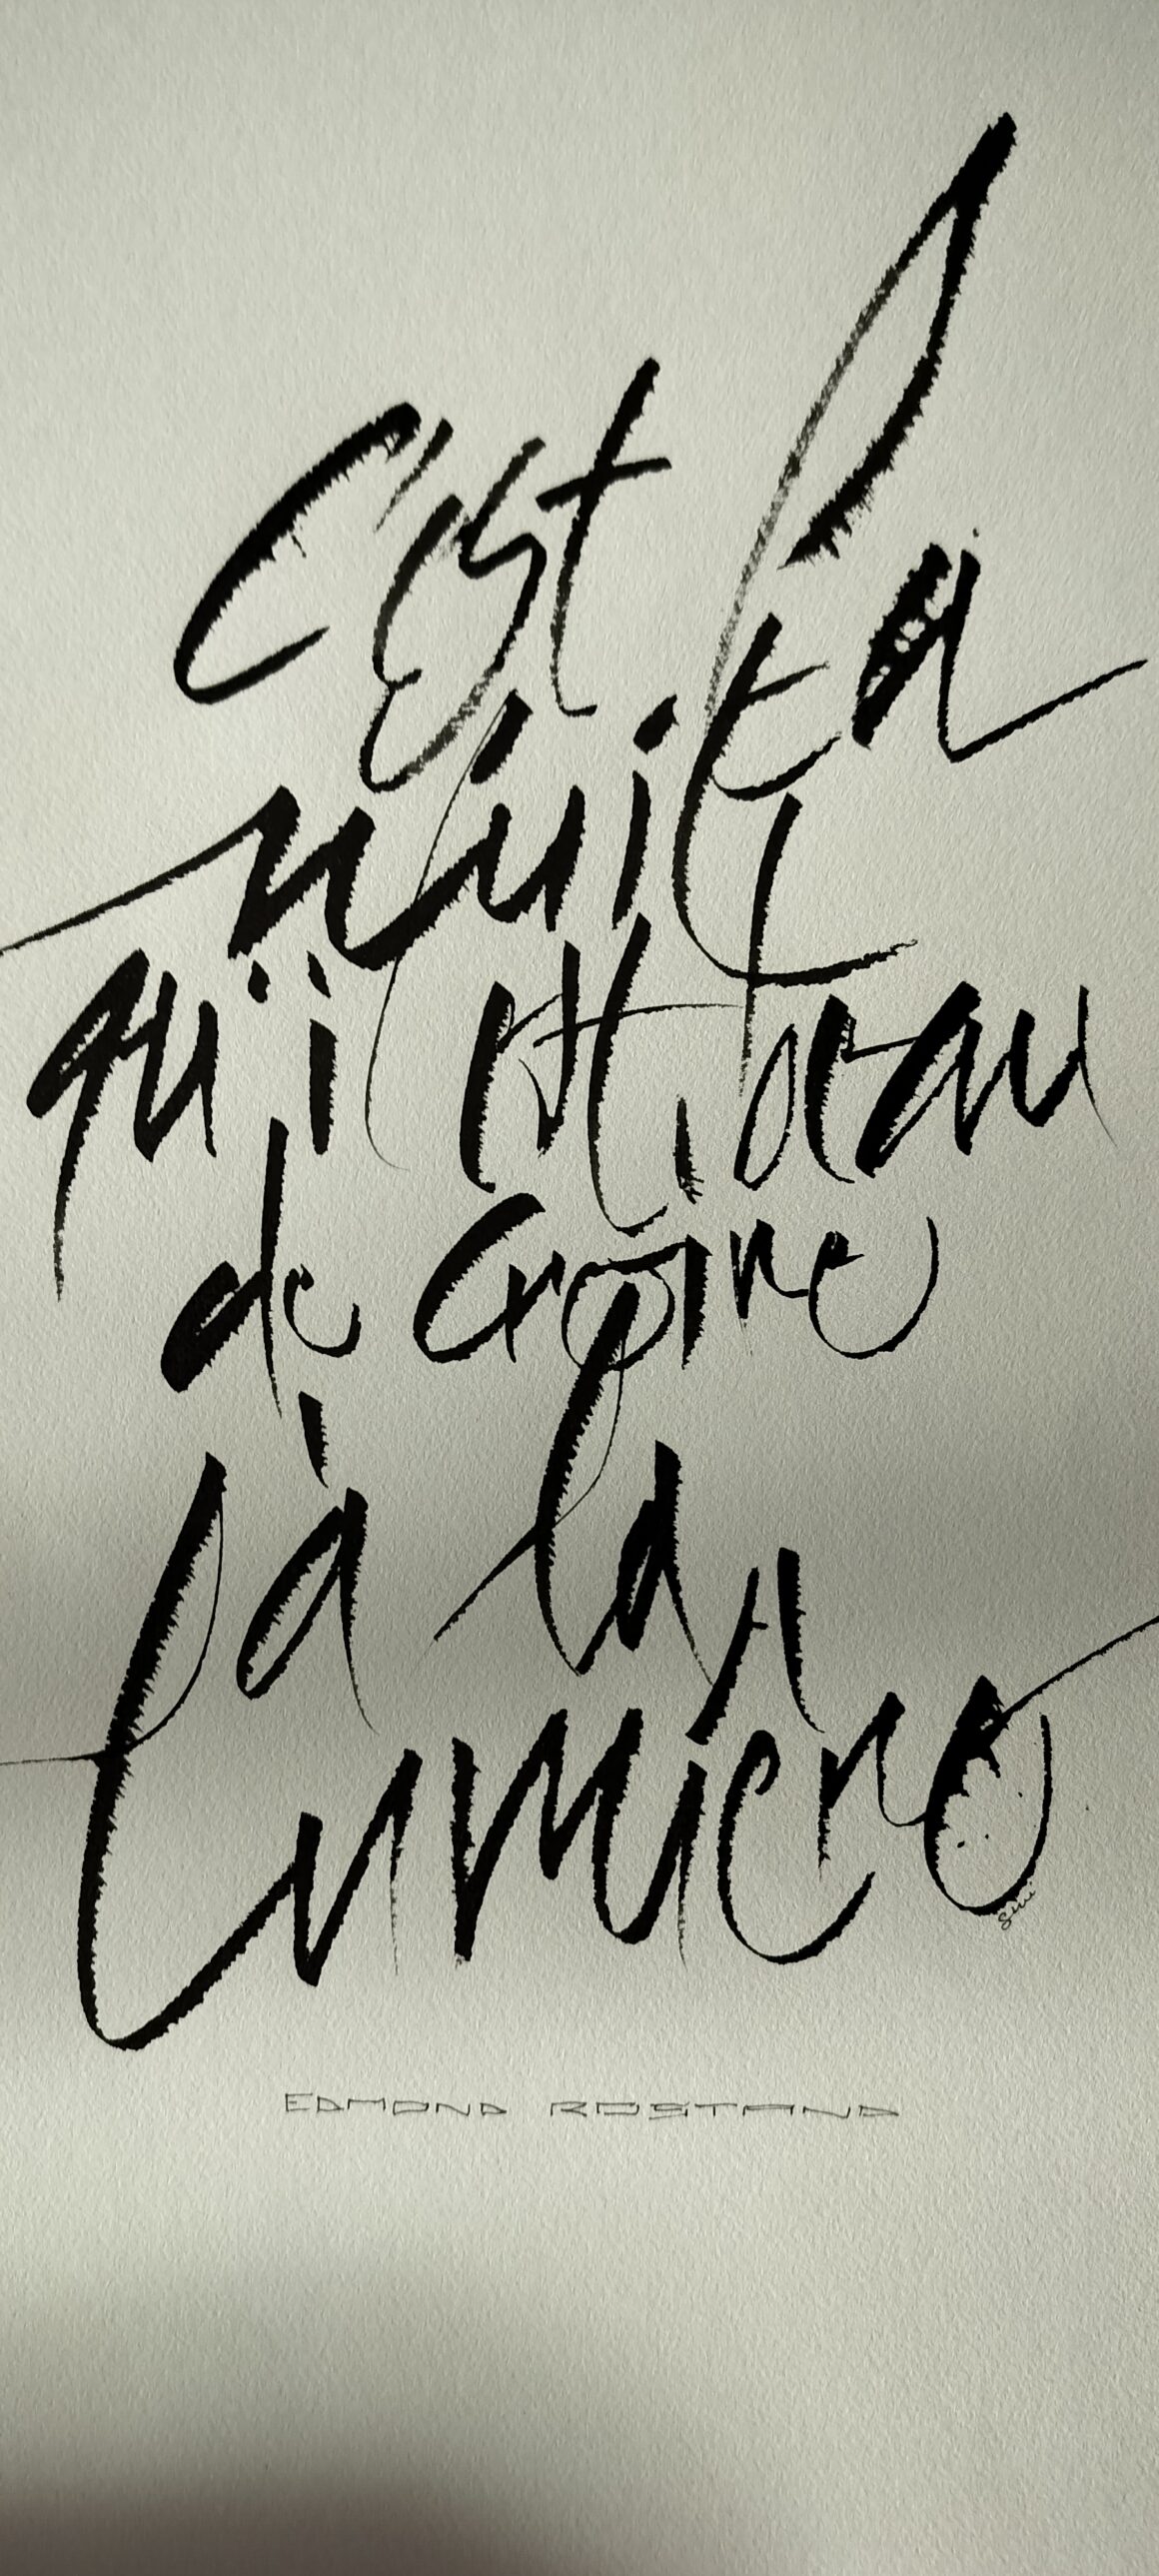 C'est la
nuit
qu'il est beau
de croire
à la
lumière
EDMOND ROSTAND